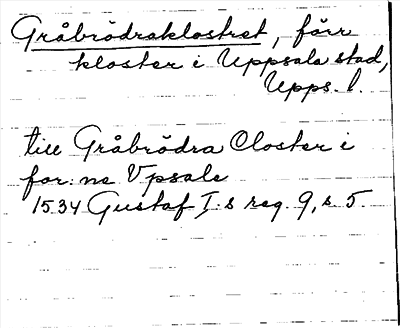 Gråbrödraklostret, förr
kloster i Uppsala stad,
Upps. l.
till Gråbrödra Closter i
for:ne Vpsale
1534 Gustaf I:s reg. 9, s. 5.